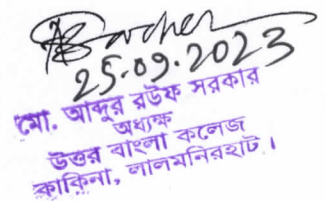 25.09.2023
মো. আব্দুর রউফ সরকার
অধ্যক্ষ
উত্তর বাংলা কলেজ
কাকিনা, লালমনিরহাট।